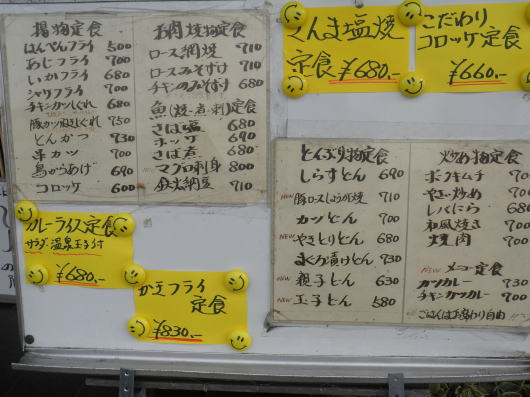 揚物定食
はんぺんフライ 500
あじフライ 700
いかフライ 680
シャリフライ 700
チキンカツしぐれ 680
豚カツねぎしぐれ 750
とんかつ 730
串カツ 700
鳥からあげ 690
コロッケ 600
お肉焼物定食
ロース網焼 710
ロースみそづけ 710
チキンのみそづけ 680
魚(焼・煮・刺)定食
さば塩 680
ホッケ 690
さば煮 680
マグロ刺身 800
鉄火納豆 710
さんま塩焼
定食 ¥680.-
こだわり
コロッケ定食
¥660.-
どんぶり物定食
しらすどん 690
NEW 豚ロースしょうが焼 710
カツどん 700
NEW やきとりどん 680
まぐろ漬けどん 730
NEW 親子どん 630
NEW 玉子どん 580
炒め物定食
ポークキムチ 700
やさい炒め 700
レバにら 680
和風焼き 700
焼肉 700
NEW メニュー定食
カツカレー 730
チキンカツカレー 700
ごはんはお替わり自由
カレーライス定食
サラダ・温泉玉子付
¥680.-
かきフライ
定食
¥830.-